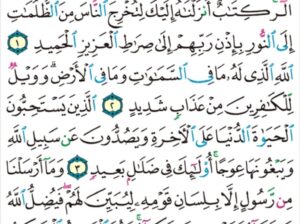 الٓر كِتَٰبٌ أَنزَلْنَٰهُ إِلَيْكَ لِتُخْرِجَ ٱلنَّاسَ مِنَ ٱلظُّلُمَٰتِ
إِلَى ٱلنُّورِ بِإِذْنِ رَبِّهِمْ إِلَىٰ صِرَٰطِ ٱلْعَزِيزِ ٱلْحَمِيدِ ١
ٱللَّهِ ٱلَّذِى لَهُۥ مَا فِى ٱلسَّمَٰوَٰتِ وَمَا فِى ٱلْأَرْضِ وَوَيْلٌ
لِّلْكَٰفِرِينَ مِنْ عَذَابٍ شَدِيدٍ ٢ ٱلَّذِينَ يَسْتَحِبُّونَ
ٱلْحَيَوٰةَ ٱلدُّنْيَا عَلَى ٱلْءَاخِرَةِ وَيَصُدُّونَ عَن سَبِيلِ ٱللَّهِ
وَيَبْغُونَهَا عِوَجًا أُو۟لَٰٓئِكَ فِى ضَلَٰلٍۭ بَعِيدٍ ٣ وَمَآ أَرْسَلْنَا
مِن رَّسُولٍ إِلَّا بِلِسَانِ قَوْمِهِۦ لِيُبَيِّنَ لَهُمْ فَيُضِلُّ ٱللَّهُ